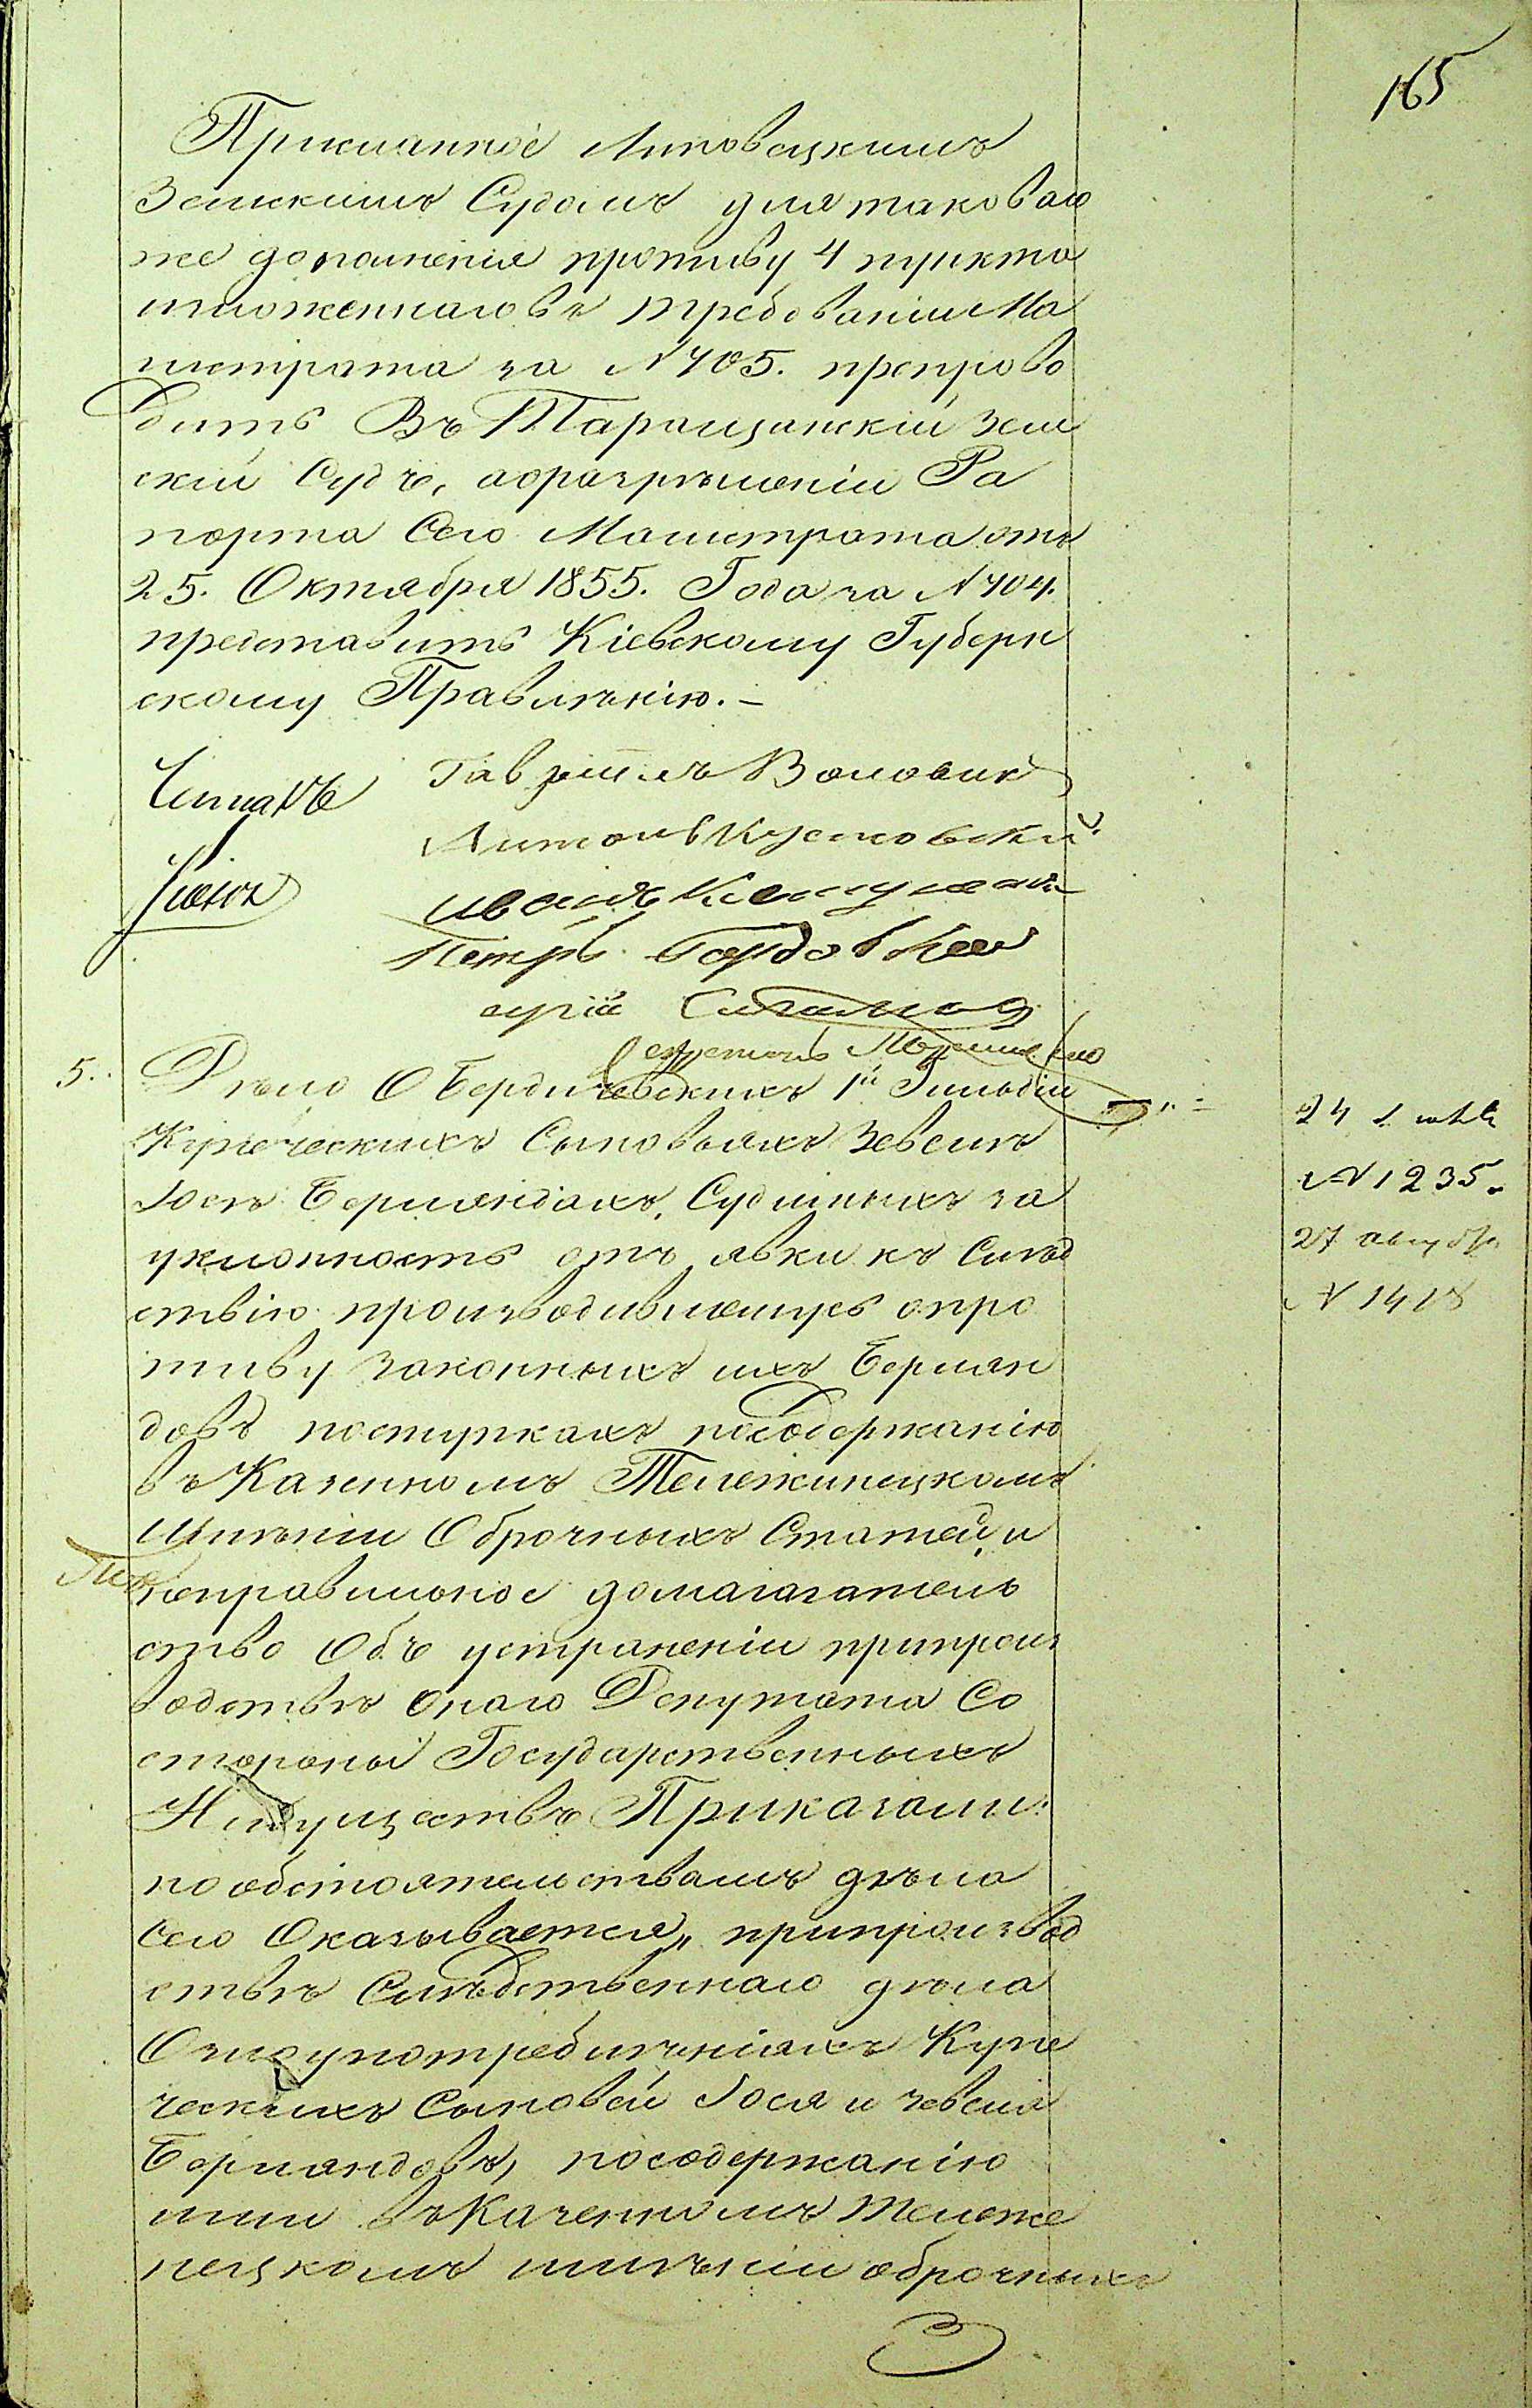 165
Присланное Липовецкимъ
Земскимъ Судомъ для таковаго
же дополненія противу 4 пункта
изложеннаго въ требованіи Ма
гистрата за N 705. препрово
дить Въ Таращанскій Зем
скій Судъ, а о разрѣшеніи Ра
порта Сего Магистрата отъ
25. Октября 1855. Года за N 704.
представить Кіевскому Губерн
скому Правлѣнію. –
Гавріилъ
Антонъ
Иванъ
Петръ
Секретарь
5. Дѣло О Бердичевскихъ 1й Гильдіи
Купеческихъ Сыновьяхъ Зевелѣ
Іослѣ Бермандахъ, Судимыхъ за
уклонность отъ явки къ Слѣд
ствію производившемусь о про
тиву законныхъ ихъ Берман
довъ поступкахъ по содержанію
въ Казенномъ Тележинецкомъ
Имѣніи Оброчныхъ Статей, и
неправильное домагагатель
ство Объ устраненіи при произ
водствѣ онаго Депутата Со
стороны Государственныхъ
Имуществъ Приказали:
по обстоятельствамъ дѣла
Сего Оказывается, при производ
ствѣ Слѣдственнаго дѣла
О злоупотреблѣніяхъ Купе
ческихъ Сыновей Іося и Зевеля
Бермандовъ, по содержанію
ими въ Казенномъ Тележе
нецкомъ имѣніи оброчныхъ
24
N 1235.
27 августа
N 1418